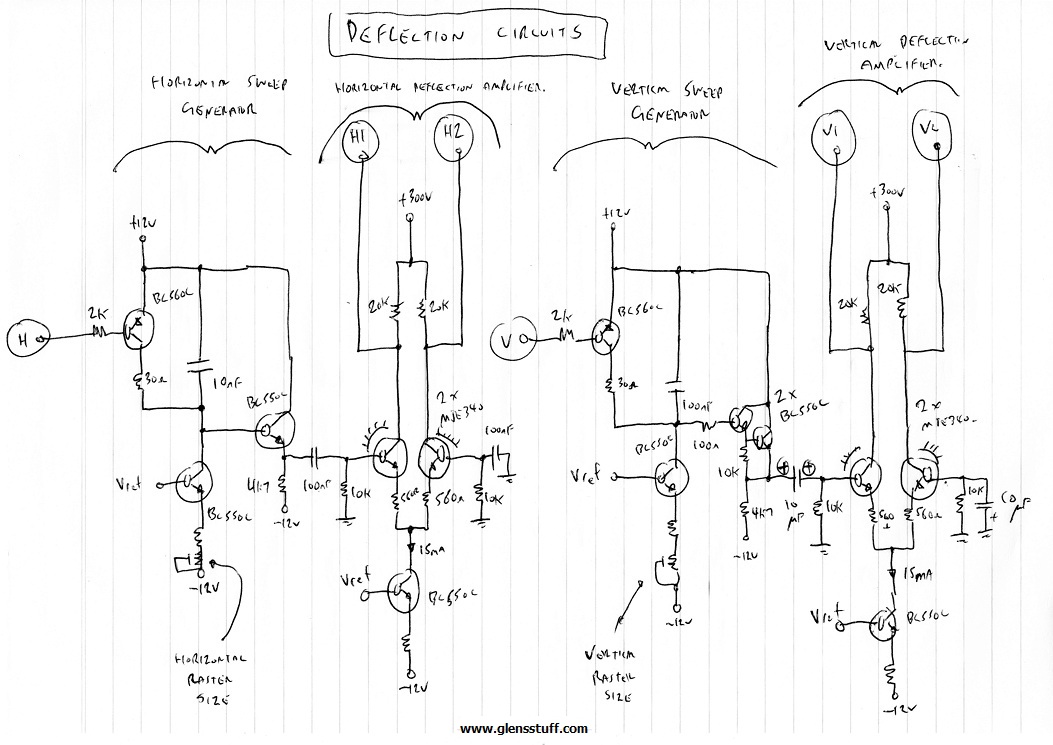 DEFLECTION CIRCUITS
HORIZONTAL SWEEP
GENERATOR
HORIZONTAL DEFLECTION AMPLIFIER.
VERTICAL SWEEP
GENERATOR
VERTICAL DEFLECTION
AMPLIFIER.
H1
H2
V1
+300V
+300V
+12V
+12V
BC560C
BC560C
2K
2K
H
V
20K
20K
20K
20K
30Ω
30Ω
10nF
100nF
BC550C
2x
MJE340
2x
BC550C
2x
MJE340
100nF
100Ω
BC550C
Vref
Vref
BC550C
4K7
100nF
10K
560Ω
560Ω
10K
10K
4K7
10
µF
10K
560Ω
560Ω
10K
10
µF
-12V
-12V
-12V
-12V
15mA
15mA
Vref
BC550C
Vref
BC550C
-12V
-12V
HORIZONTAL
RASTER
SIZE
VERTICAL
RASTER
SIZE
www.glensstuff.com